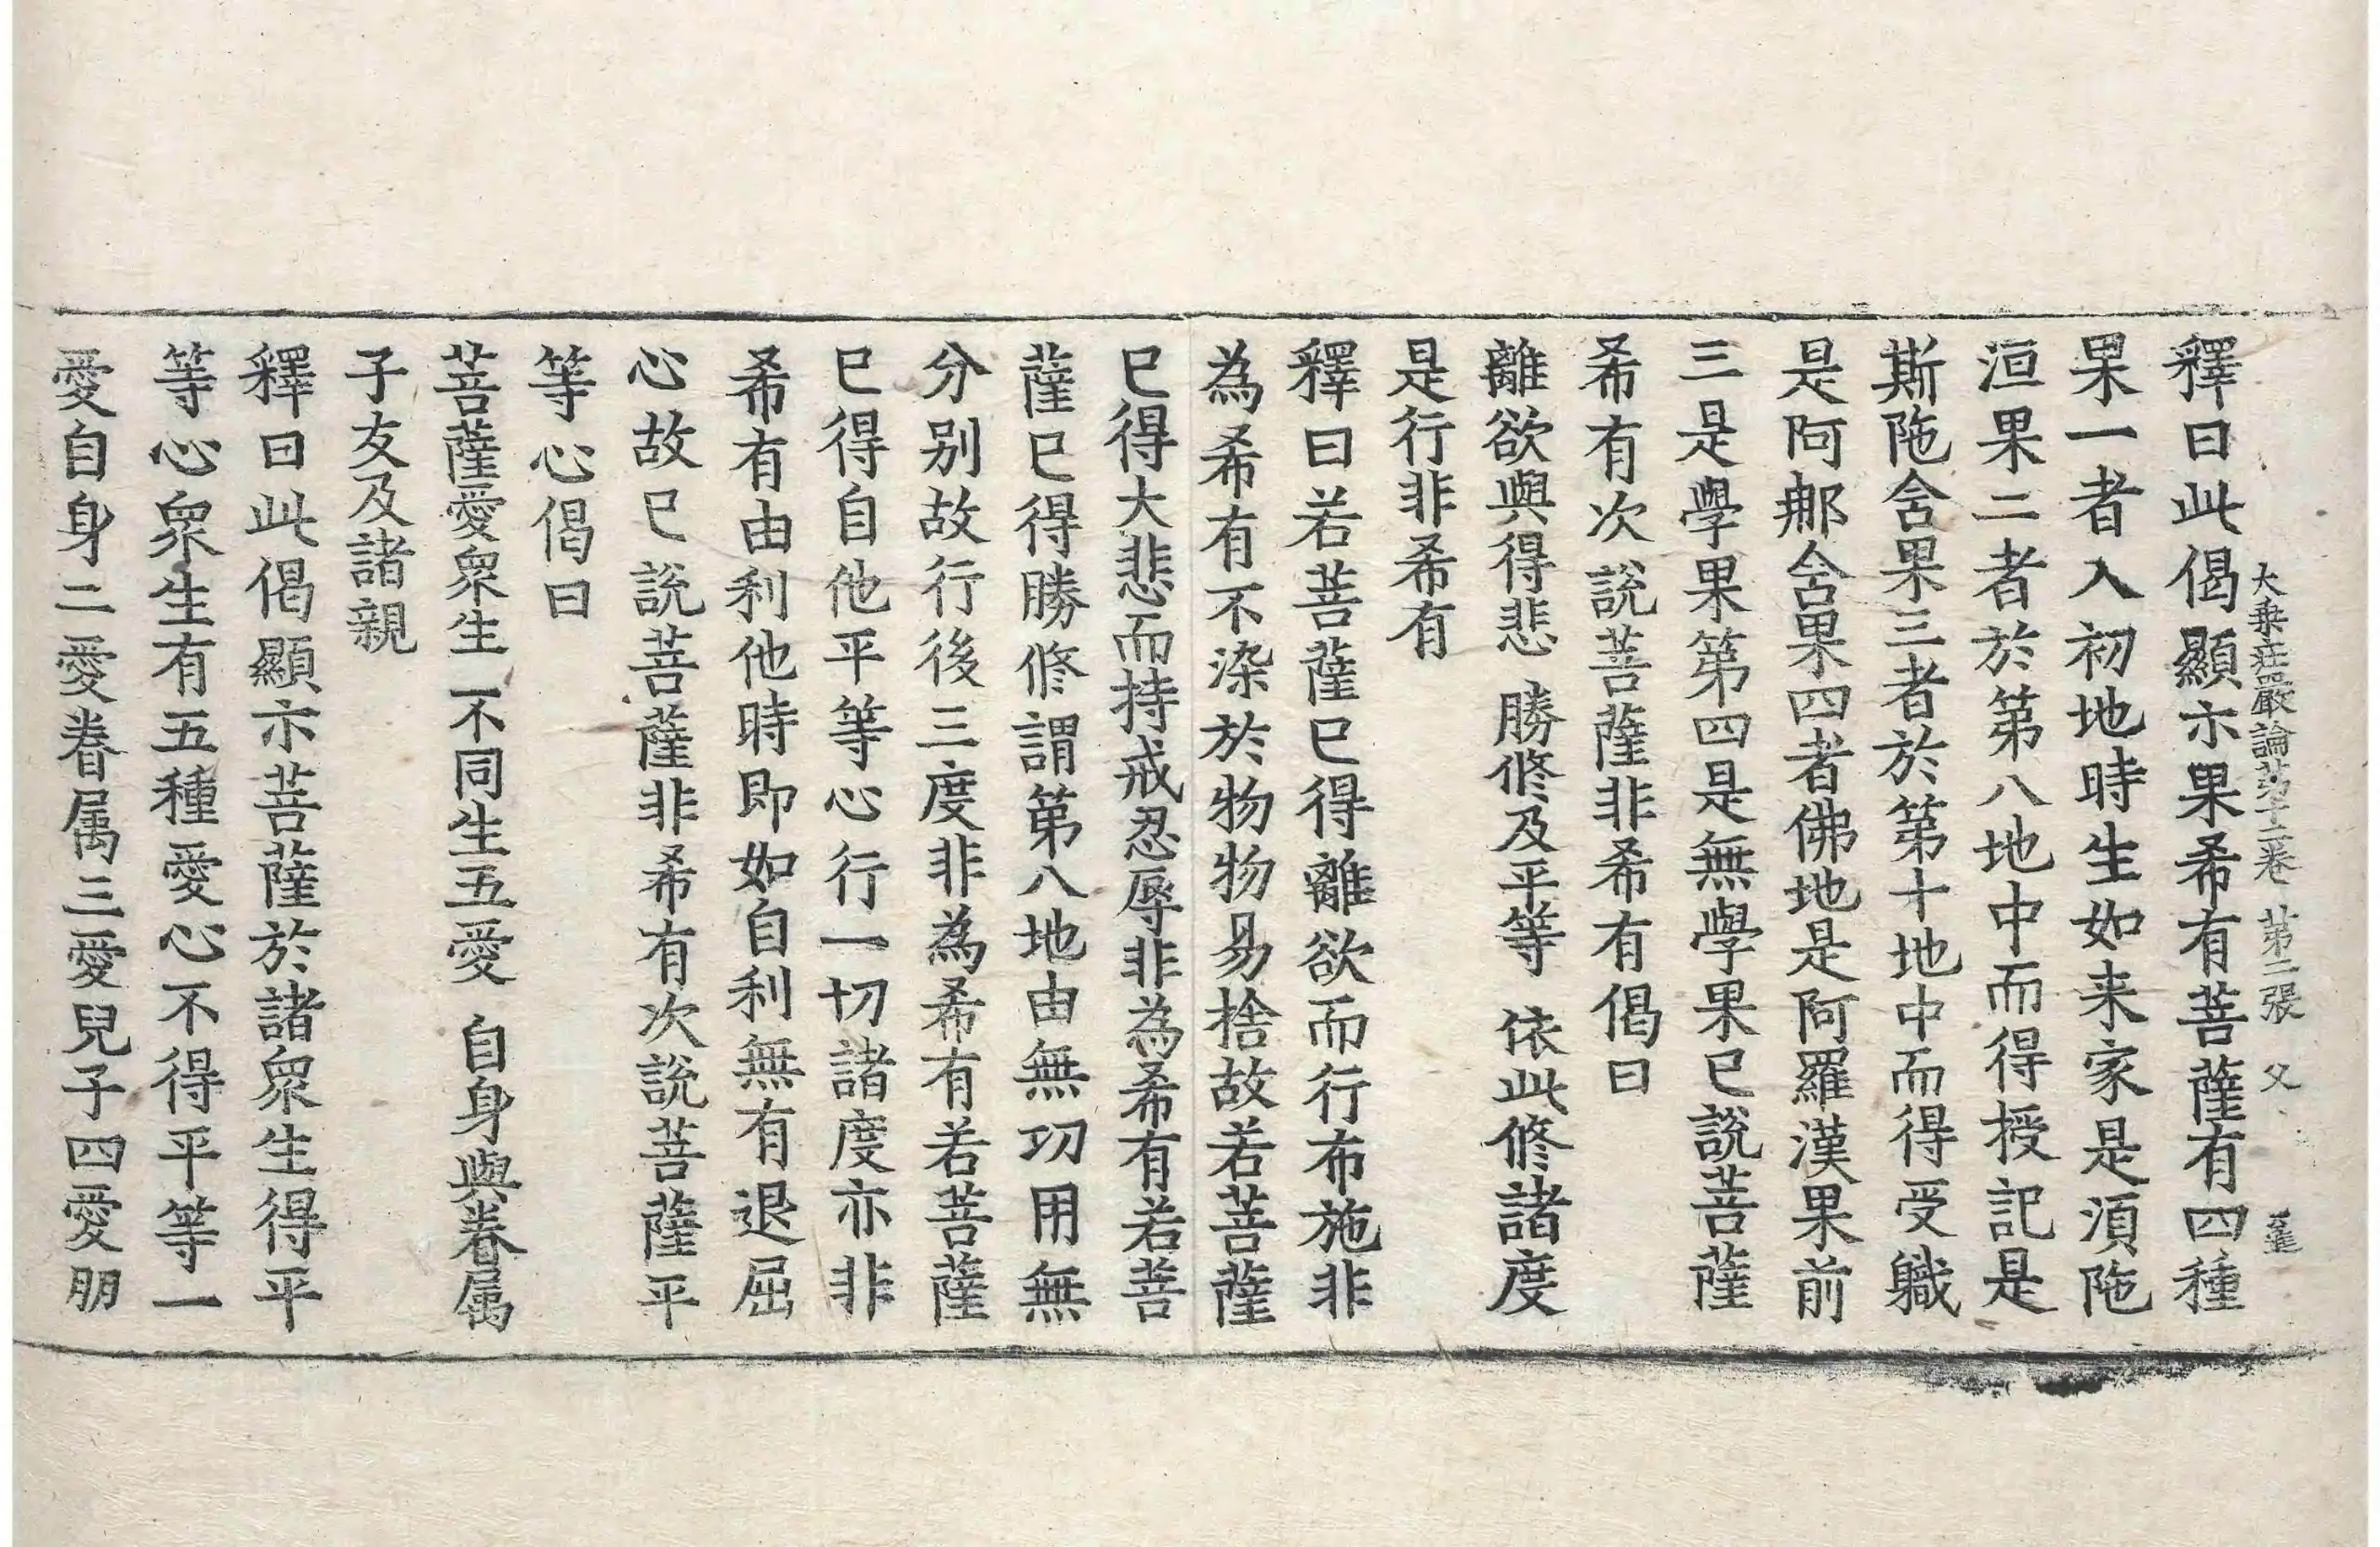 大乘莊嚴論第十二卷 第二張 父
釋曰此偈顯示果希有菩薩有四種
果一者入初地時生如来家是湏陁
洹果二者於第八地中而得授記是
斯陁含果三者於第十地中而得受軄
是阿那含果四者佛地是阿羅漢果前
三是學果第四是無學果已說菩薩
希有次說菩薩非希有偈曰
離欲與得悲 勝修及平等 依此修諸度
是行非希有
釋曰若菩薩已得離欲而行布施非
為希有不染於物物易捨故若菩薩
已得大悲而持戒忍辱非為希有若菩
薩已得勝修謂第八地由無功用無
分别故行後三度非為希有若菩薩
已得自他平等心行一切諸度亦非
希有由利他時即如自利無有退屈
心故已說菩薩非希有次說菩薩平
等心偈曰
菩薩愛衆生 不同生五愛 自身與眷属
子友及諸親
釋曰此偈顯示菩薩於諸衆生得平
等心衆生有五種愛心不得平等一
愛自身二愛眷属三愛兒子四愛朋